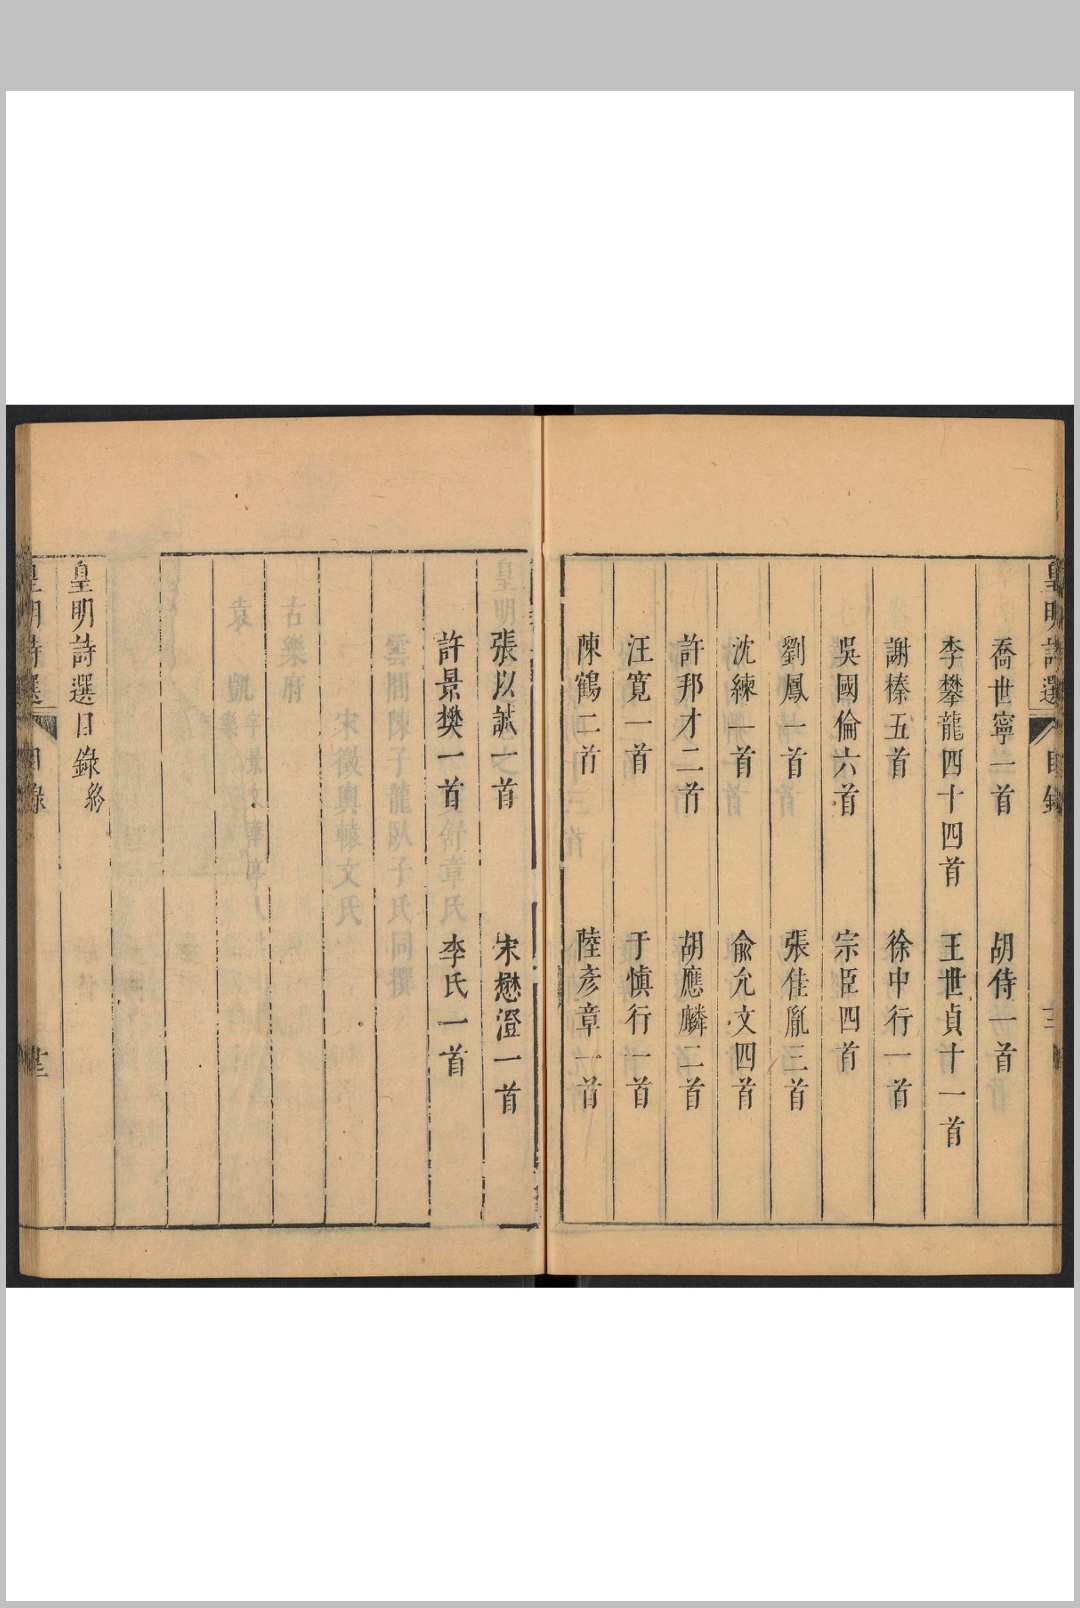 皇明詩選 目錄
喬世寧一首 胡侍一首
李攀龍四十四首 王世貞十一首
謝榛五首 徐中行一首
吳國倫六首 宗臣四首
劉鳳一首 張佳胤三首
沈練一首 俞允文四首
許邦才二首 胡應麟二首
汪寬一首 于慎行一首
陳鶴二首 陸彥章一首
張以誠一首 宋懋澄一首
許景樊一首 李氏一首
皇明詩選目錄終
皇明詩選 目錄